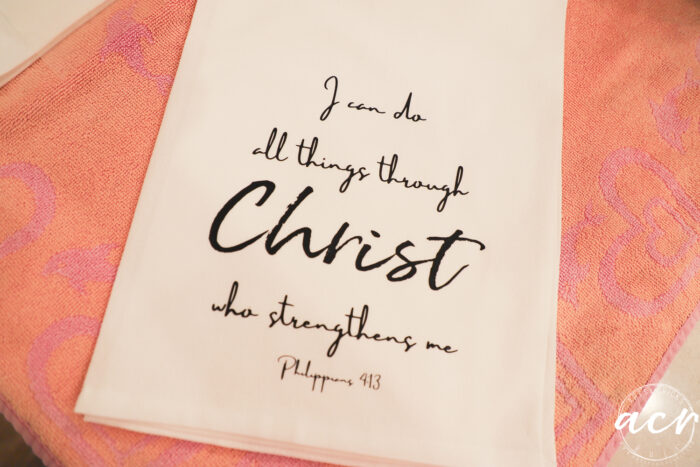 I can do
all things through
Christ
who strengthens me
Philippians 413
acr